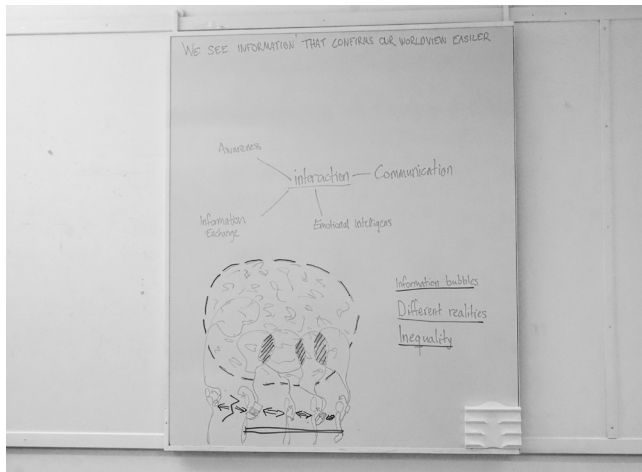 WE SEE INFORMATION THAT CONFIRMS OUR WORLDVIEW EASILER
Awareness
interaction
Communication
Information
Exchange
Emotional Intelligens
Information bubbles
Different realities
Inequality